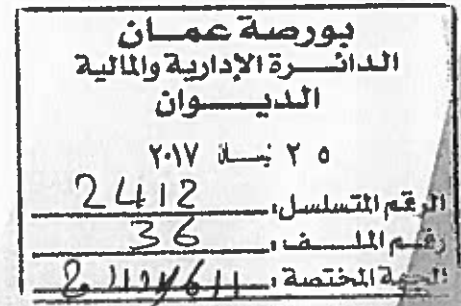 بورصة عمـان
الدائـــرة الإدارية والمالية
الديـــوان
٢٥ نيسـان ٢٠١٧
الرقم المتسلسل: 2412
رقم الملـــف: 36
الجهة المختصة: